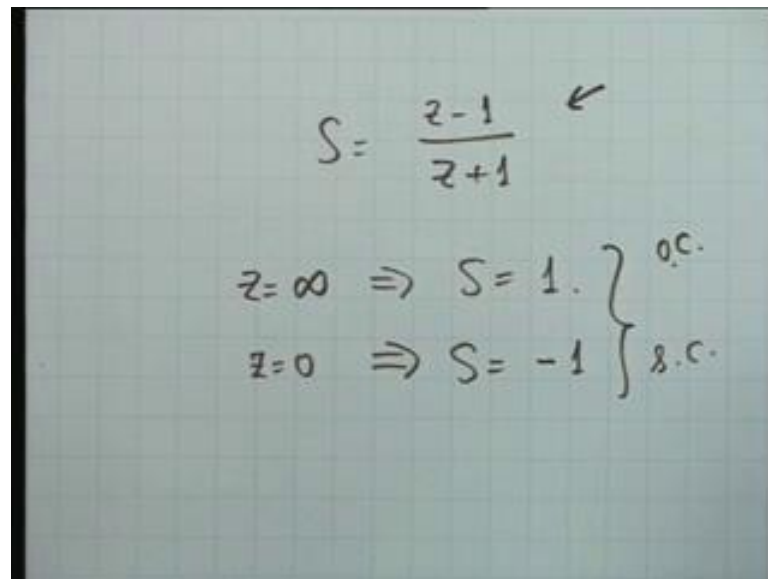 S = z - 1 / z + 1 ↙
z = ∞ ⇒ S = 1. } o.c.
z = 0 ⇒ S = -1 } s.c.